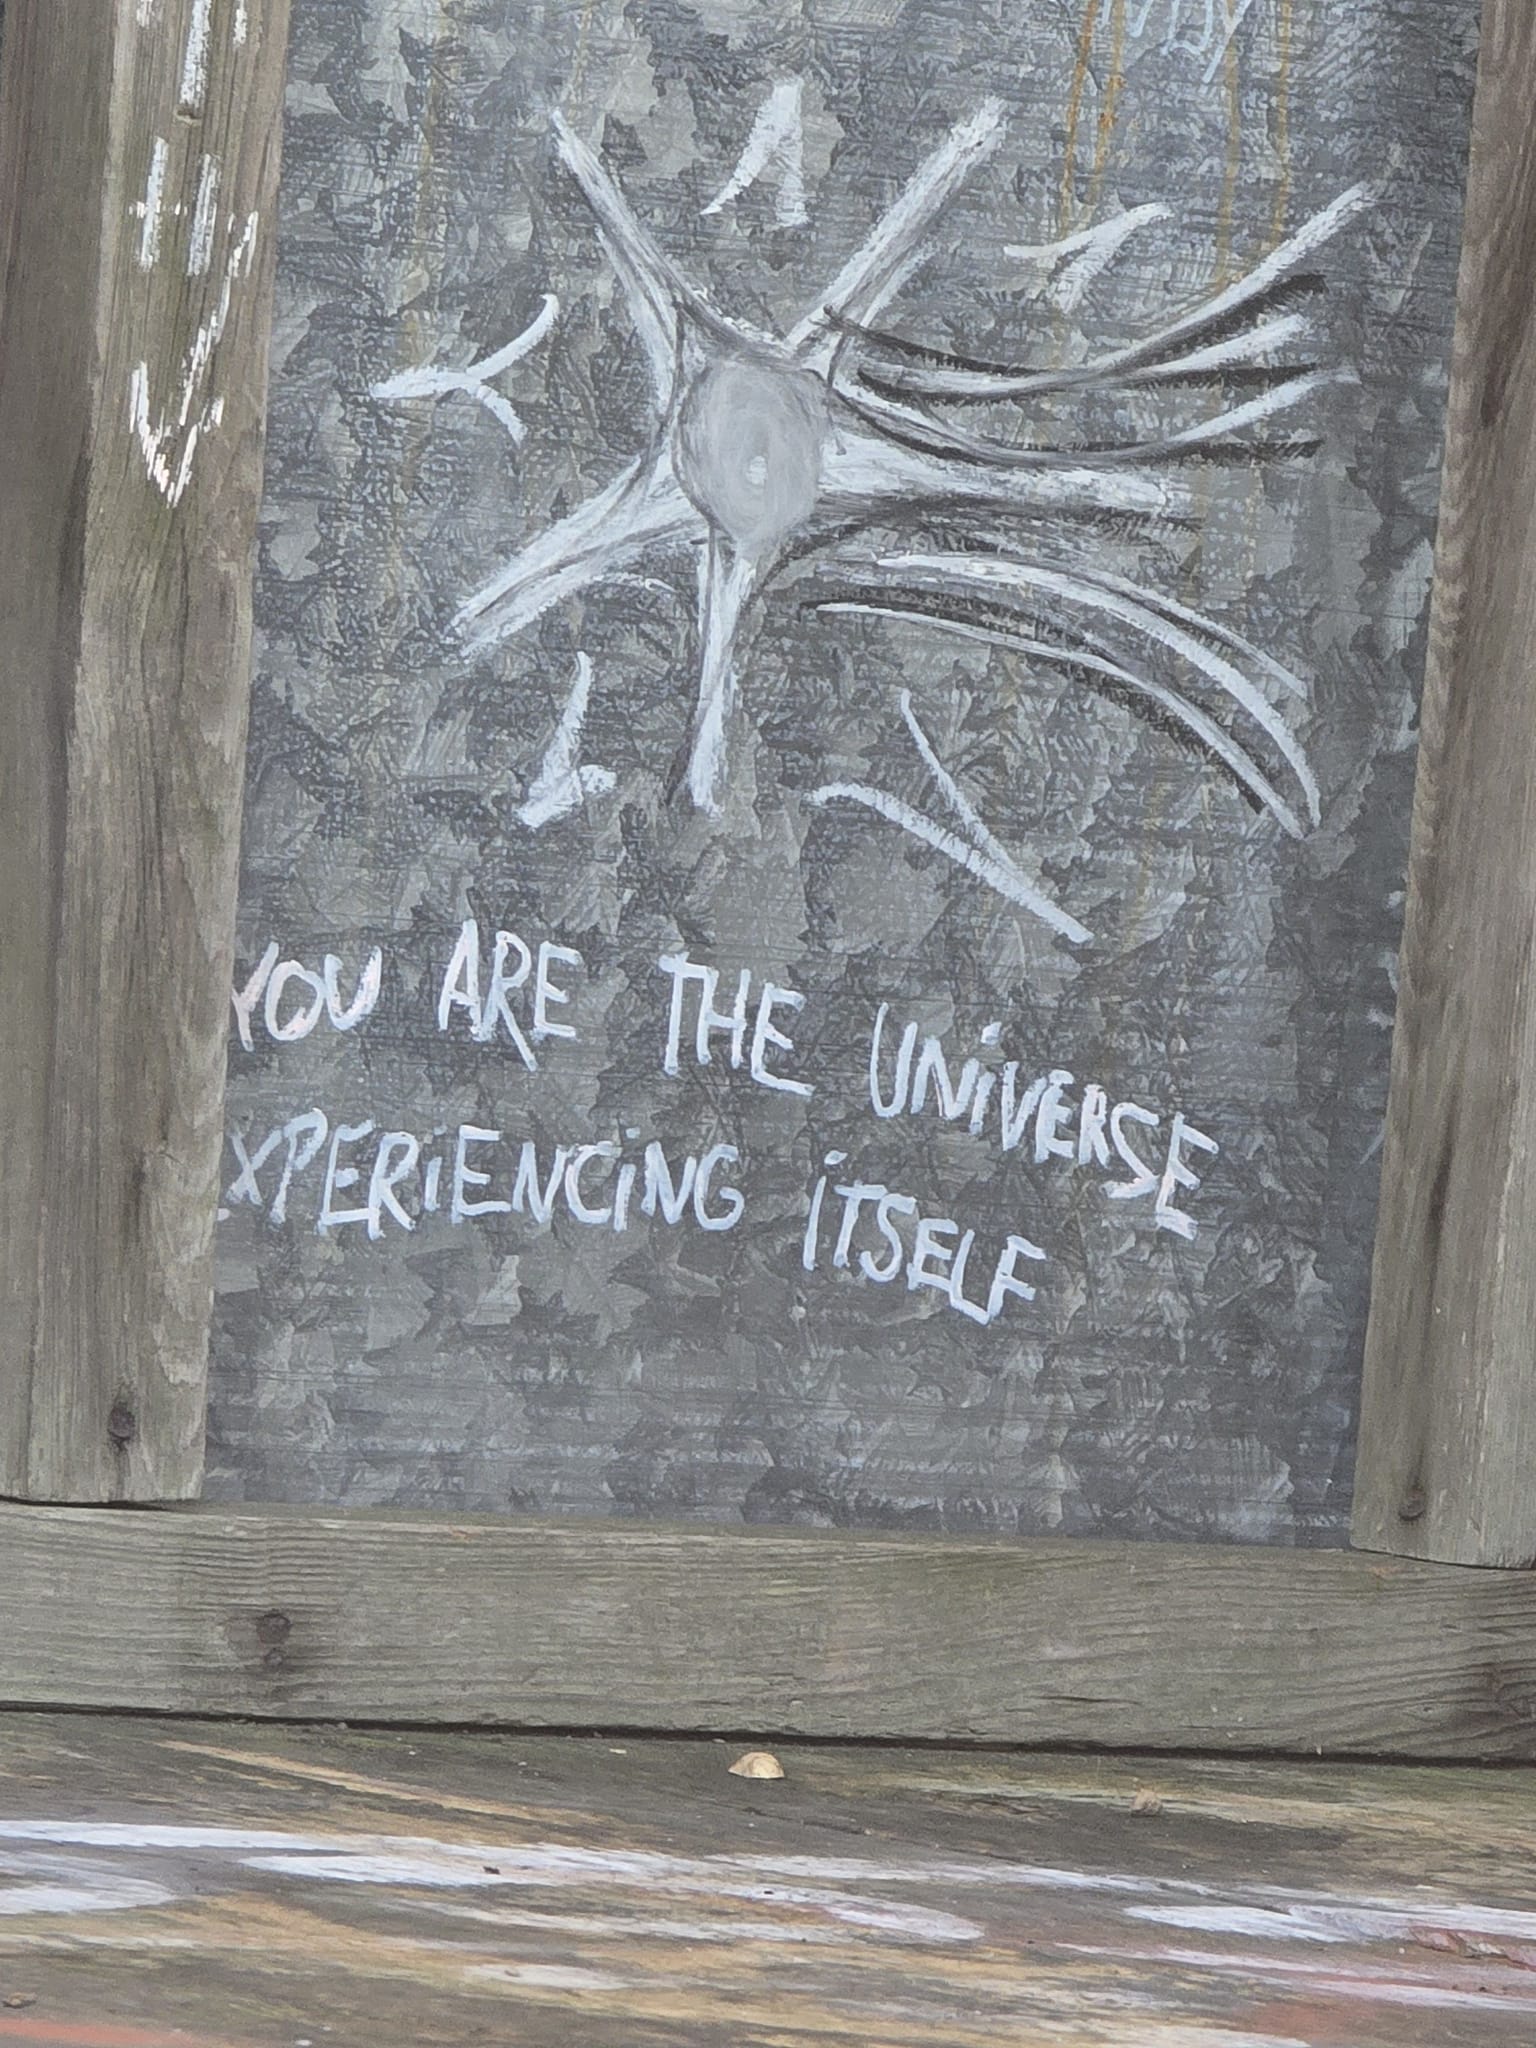 YOU ARE THE UNIVERSE
EXPERIENCING ITSELF